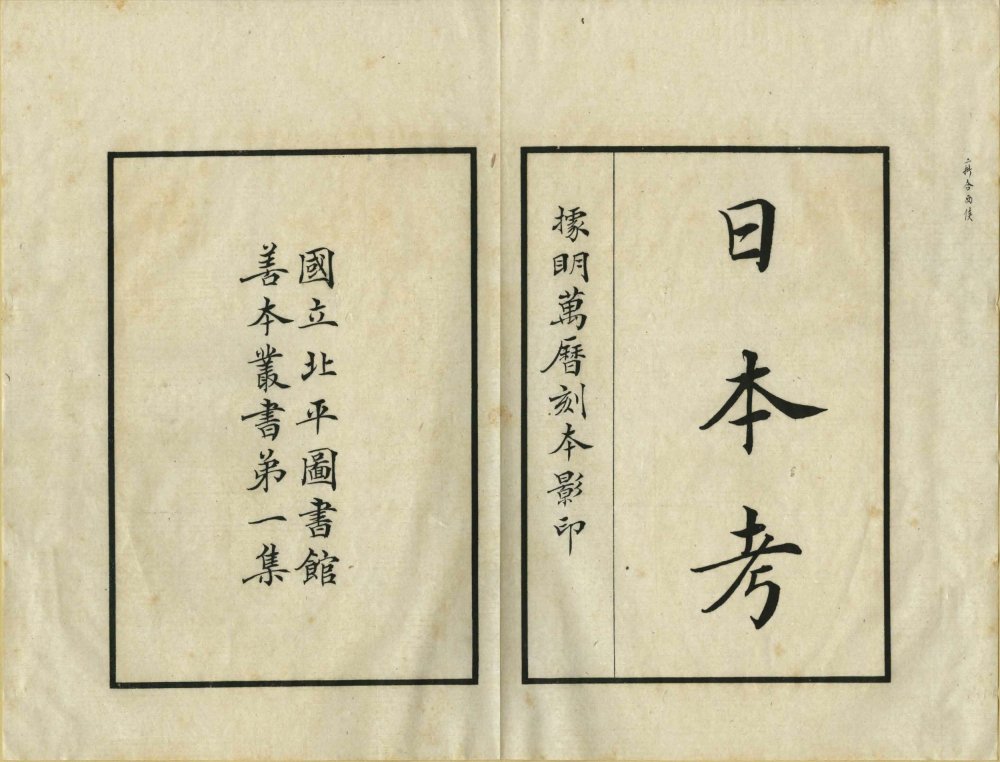 日本考
據明萬曆刻本影印
國立北平圖書館
善本叢書弟一集